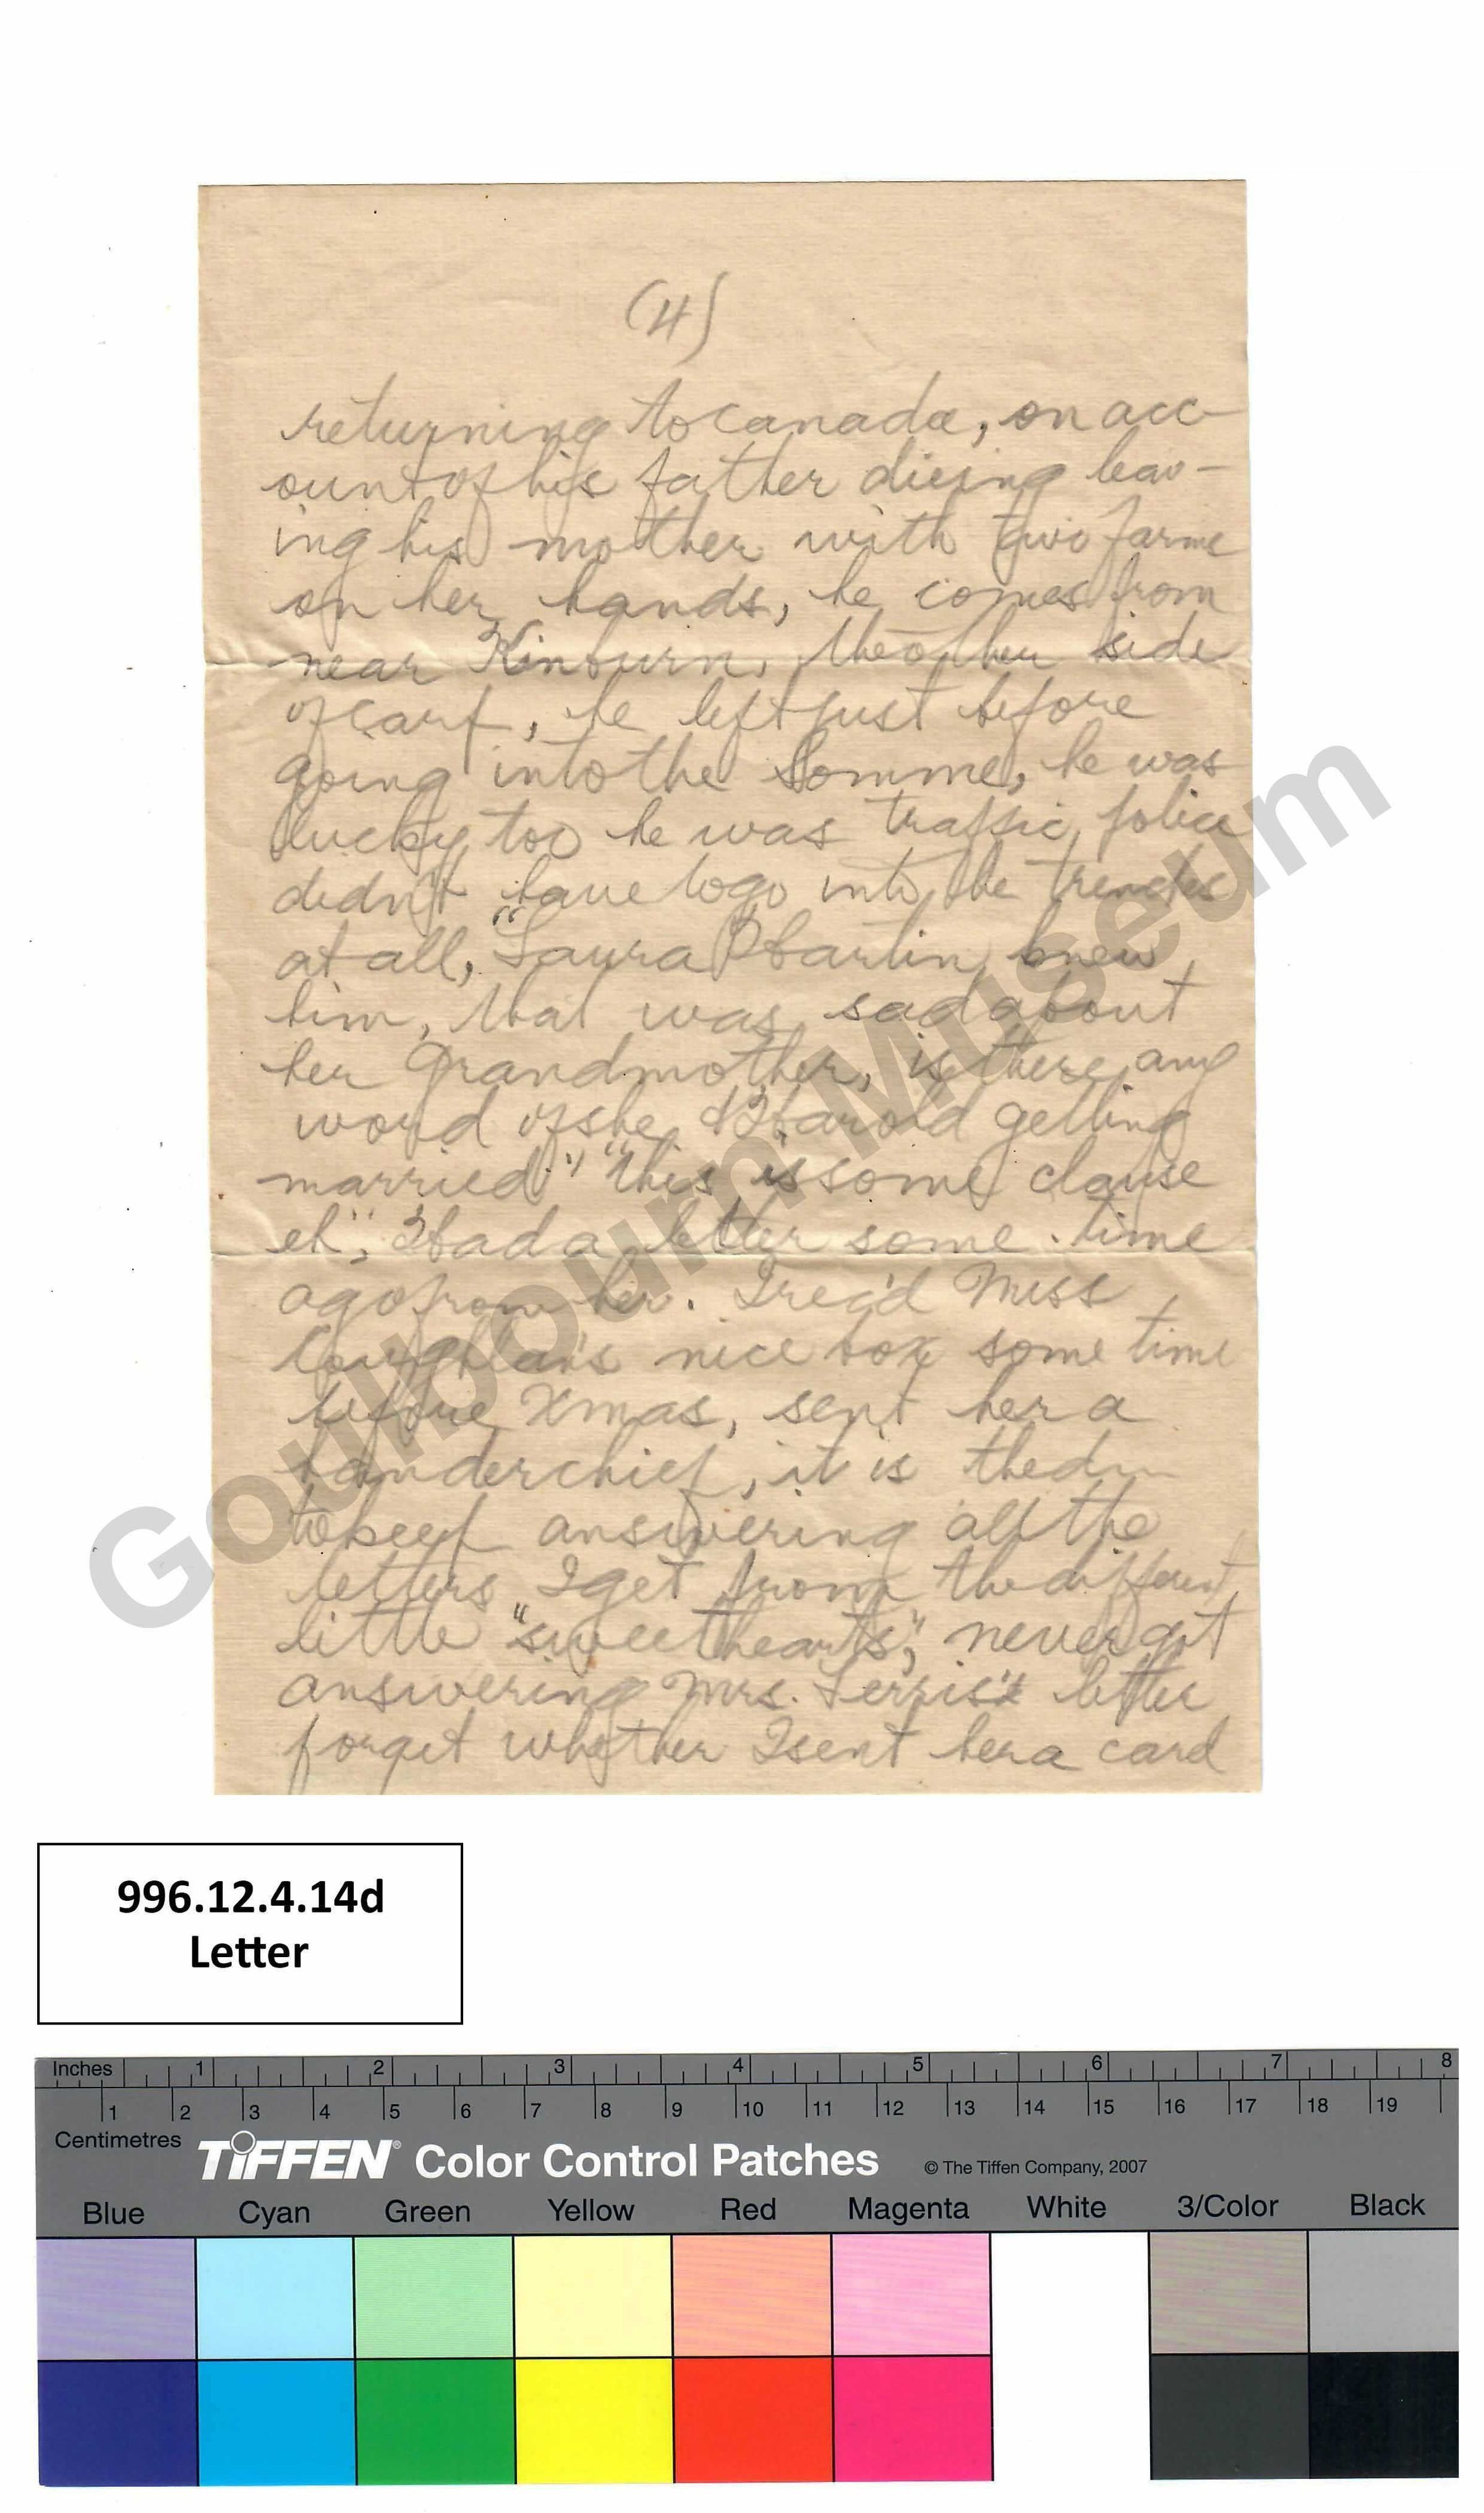 (4)
returning to Canada, on acc-
ount of his father dieing leav-
ing his mother with two farms
on her hands, he comes from
near Kinburn, the other side
of Carp, he left just before
going into the Somme, he was
lucky too he was traffic police
didn't have to go into the trenches
at all, "Laura Hartin knew
him, that was sad about
her Grandmother, is there any
word of she & Harold getting
married" "this is some clause
eh", Had a letter some time
ago from her. I rec'd Miss
Coughlan's nice box some time
before Xmas, sent her a
handerchief, it is the
to keep answering all the
letters I get from the different
little "sweethearts", never got
answering Mrs. letter
forget whether I sent her a card
Goulbourn Museum
996.12.4.14d
Letter
Inches 1 2 3 4 5 6 7 8
1 2 3 4 5 6 7 8 9 10 11 12 13 14 15 16 17 18 19
Centimetres
TIFFEN® Color Control Patches © The Tiffen Company, 2007
Blue Cyan Green Yellow Red Magenta White 3/Color Black